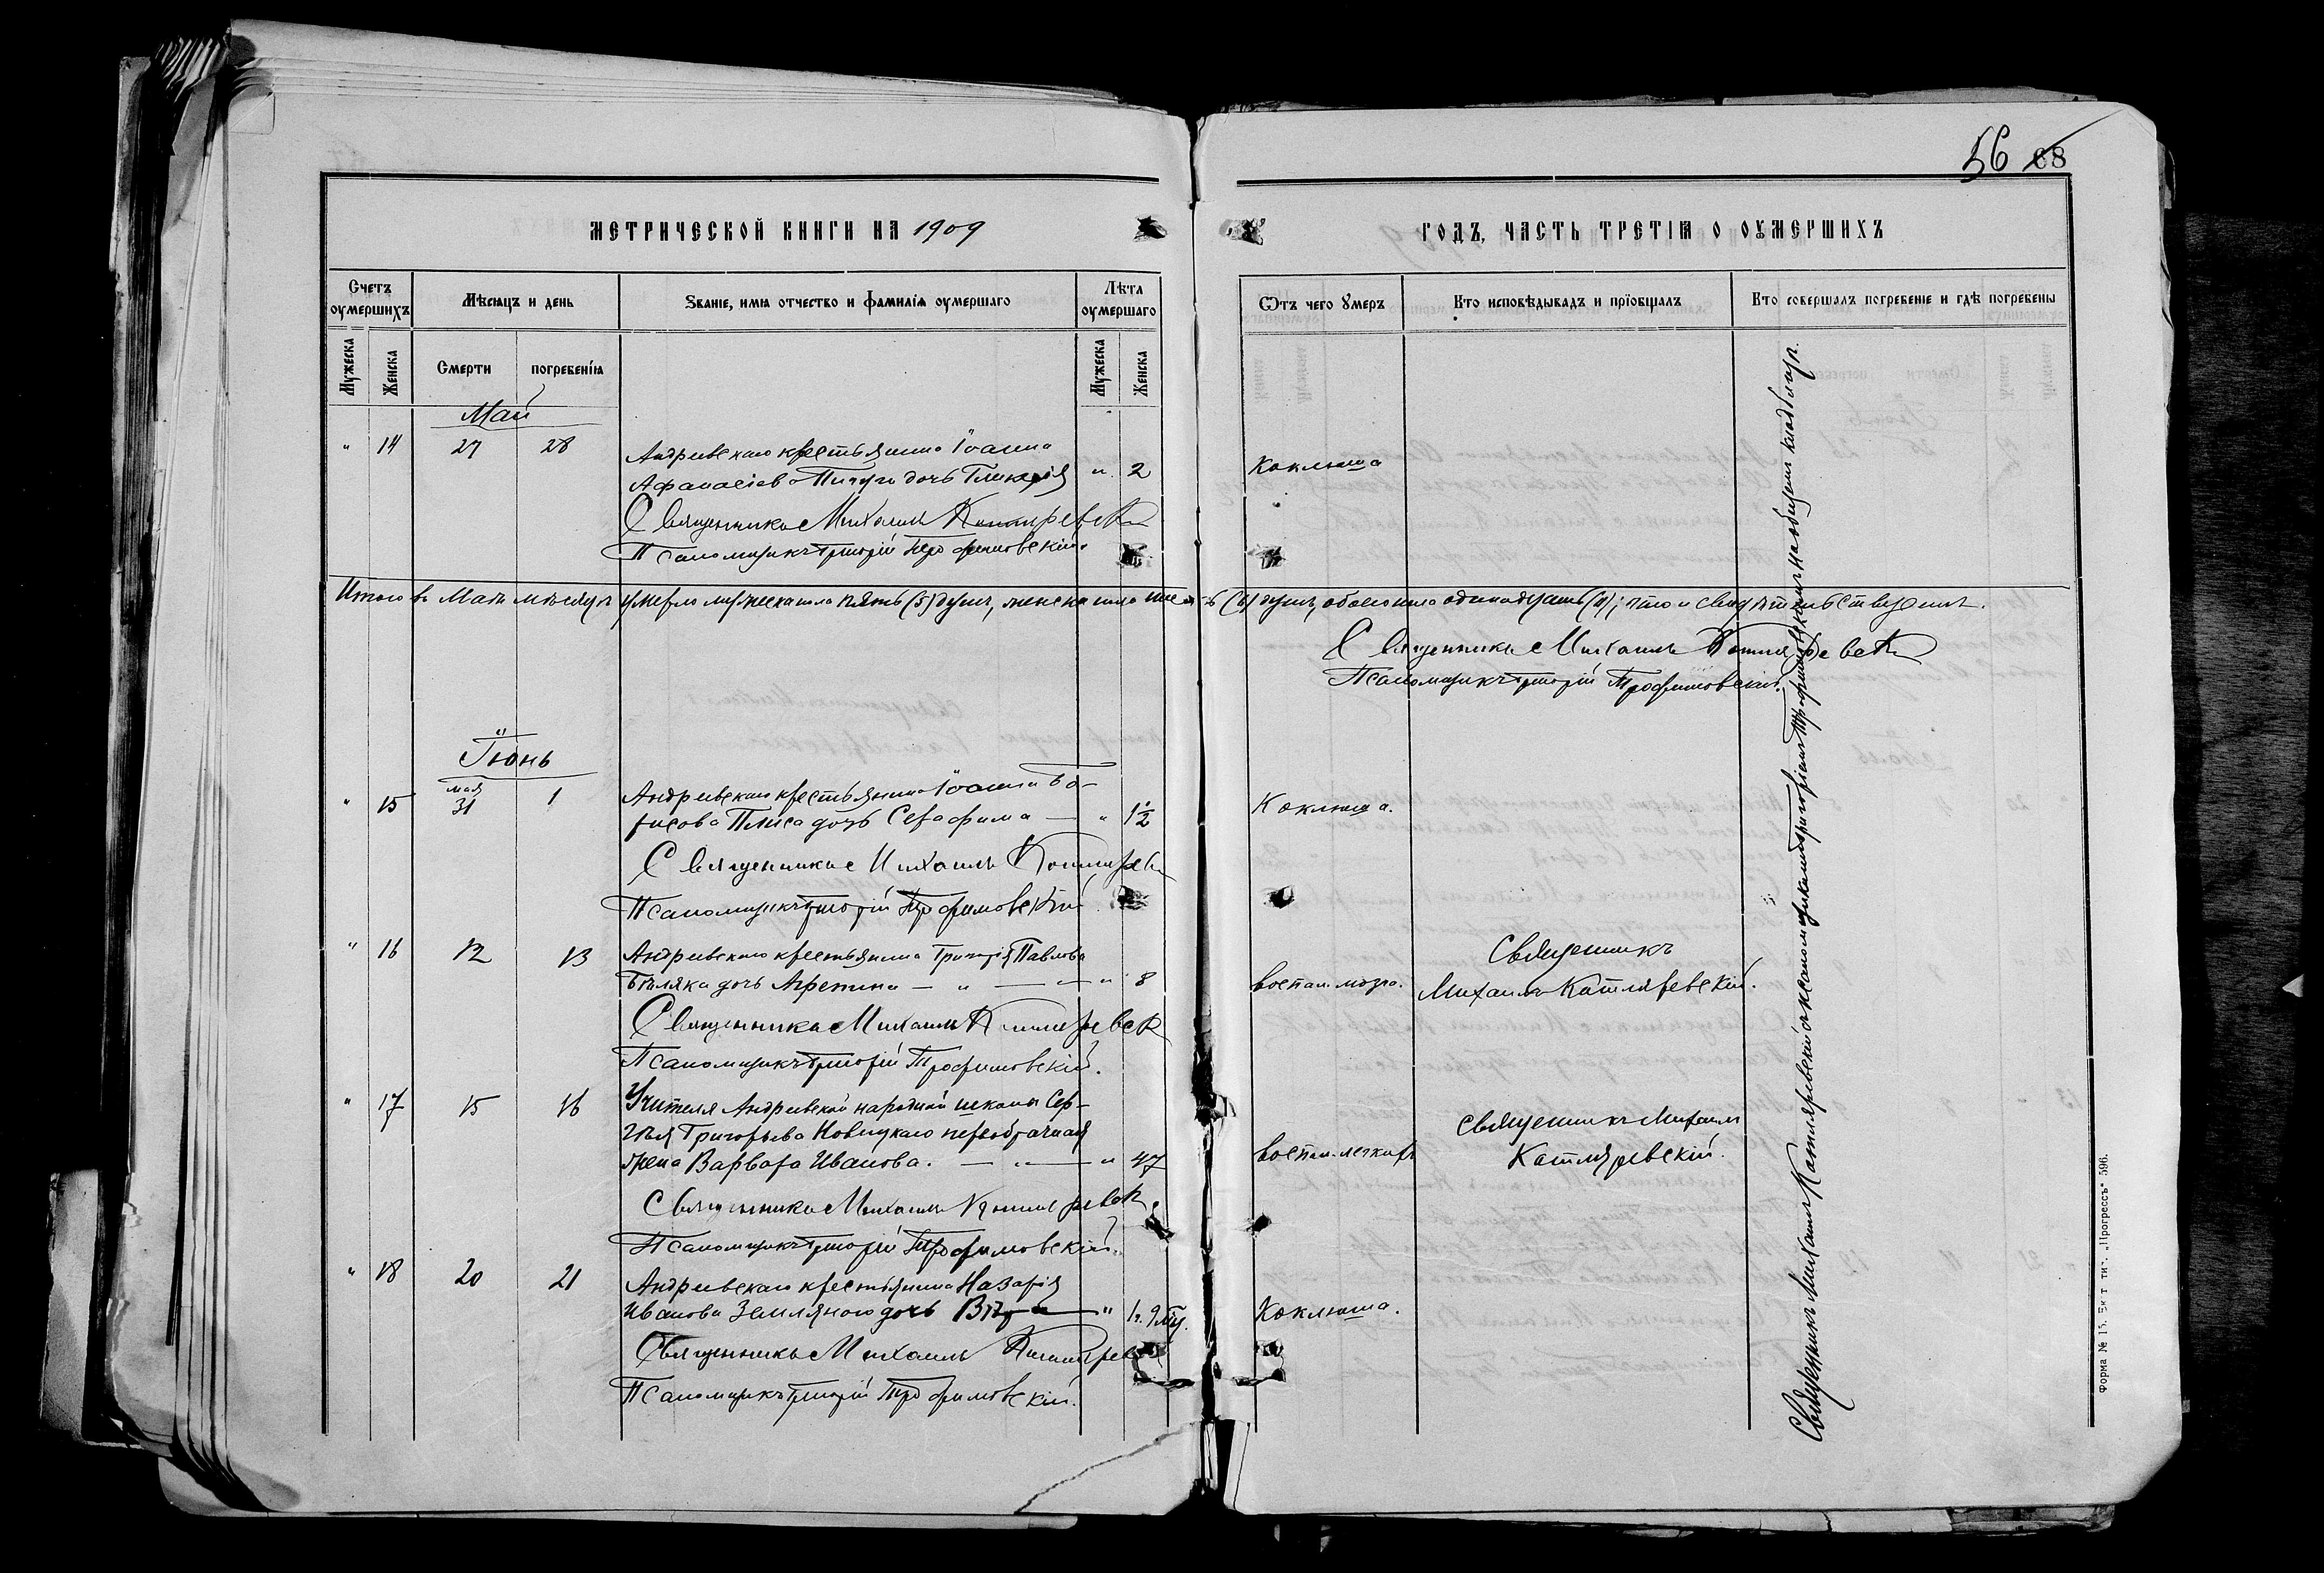 56 88
МЕТРИЧЕСКОЙ КНИГИ НА 1909
ГОДЪ, ЧАСТЬ ТРЕТІЯ О ОУМЕРШИХЪ
Счетъ оумершихъ
Мѣсяцъ и день
Званіе, имя отчество и фамилія оумершаго
Лѣта оумершаго
Ѿтъ чего ѹмеръ
Кто исповѣдывалъ и пріобщалъ
Кто совершалъ погребеніе и гдѣ погребены
Мужеска
Женска
Смерти
погребенія
Мужеска
Женска
Май
" 14 27 28 Андреевскаго крестьянина Іоанна
Афанасіева дочь Гликерія " 2 Коклюша
Священникъ Михаилъ Котляревскій
Псаломщикъ Григорій Трофимовскій.
Итого въ Маѣ мѣсяцѣ умерло мужеска пола пять (5) душъ, женска пола шесть (6) душъ, обоего пола одинадцать (11); что и свидѣтельствуемъ.
Священникъ Михаилъ Котляревскій
Псаломщикъ Григорій Трофимовскій.
Іюнь
" 15 мая 31 1 Андреевскаго крестьянина Іоанна Бо-
рисова Плиса дочь Серафима — " 1½ Коклюша.
Священникъ Михаилъ Котляревскій
Псаломщикъ Григорій Трофимовскій
" 16 12 13 Андреевскаго крестьянина Григорія Павлова
Бѣляка дочь Агрепина — " — " 8 воспал. мозга.
Священникъ
Михаилъ Котляревскій.
Священникъ Михаилъ Котляревскій
Псаломщикъ Григорій Трофимовскій.
" 17 15 16 Учителя Андреевской народной школы Сер-
гѣя Григорьева Новицкаго первобрачная
жена Варвара Иванова. — " — " 47 воспал. легкихъ
Священникъ Михаилъ
Котляревскій.
Священникъ Михаилъ Котляревскій
Псаломщикъ Григорій Трофимовскій.
" 18 20 21 Андреевскаго крестьянина Назарія
Иванова Земляного дочь Вѣра — " 1г. 9 мц. Коклюша.
Священникъ Михаилъ Котляревскій
Псаломщикъ Григорій Трофимовскій.
Священникъ Михаилъ Котляревскій съ псаломщикомъ Григоріемъ Трофимовскимъ на общемъ кладбищѣ.
Форма № 15. Тип. „Прогрессъ" 596.